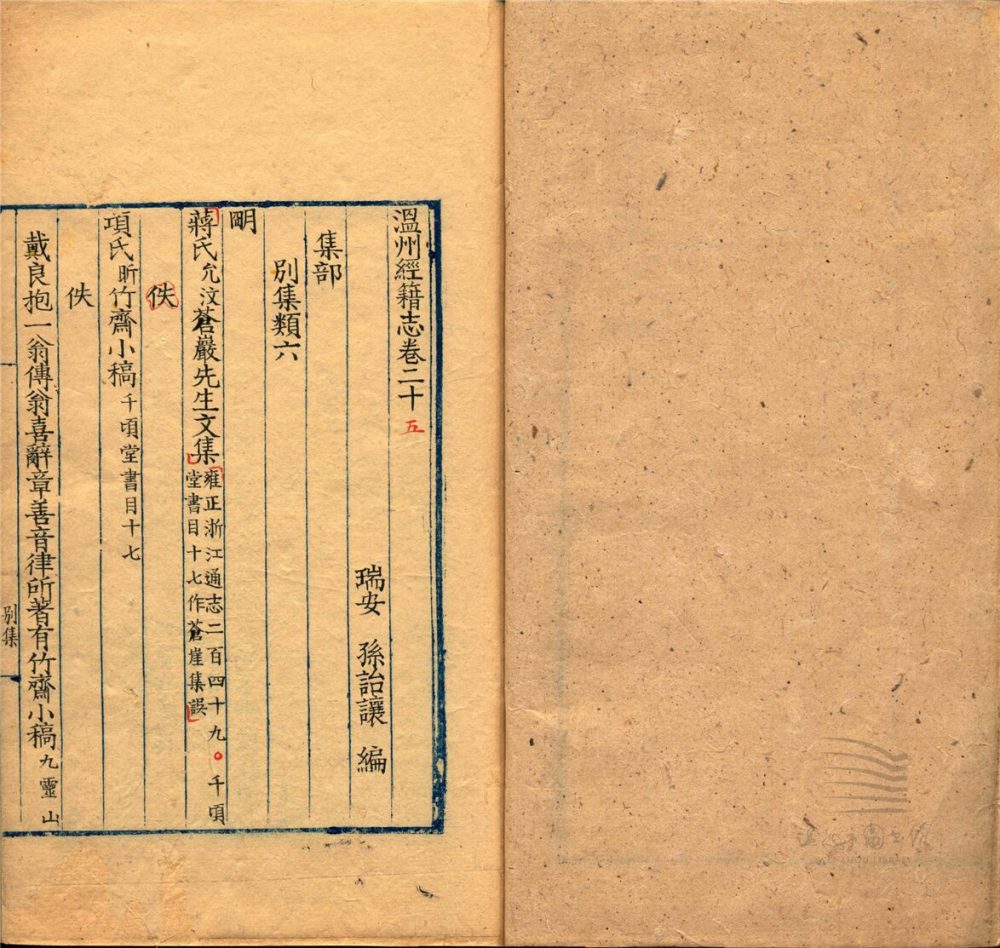 溫州經籍志卷二十五
瑞安　孫詒讓　編
集部
別集類六
明
蔣氏允汶蒼巖先生文集雍正浙江通志二百四十九。千頃
堂書目十七作蒼崖集誤
佚
項氏昕竹齋小稿千頃堂書目十七
佚
戴良抱一翁傳翁喜辭章善音律所著有竹齋小稿九靈山
別集